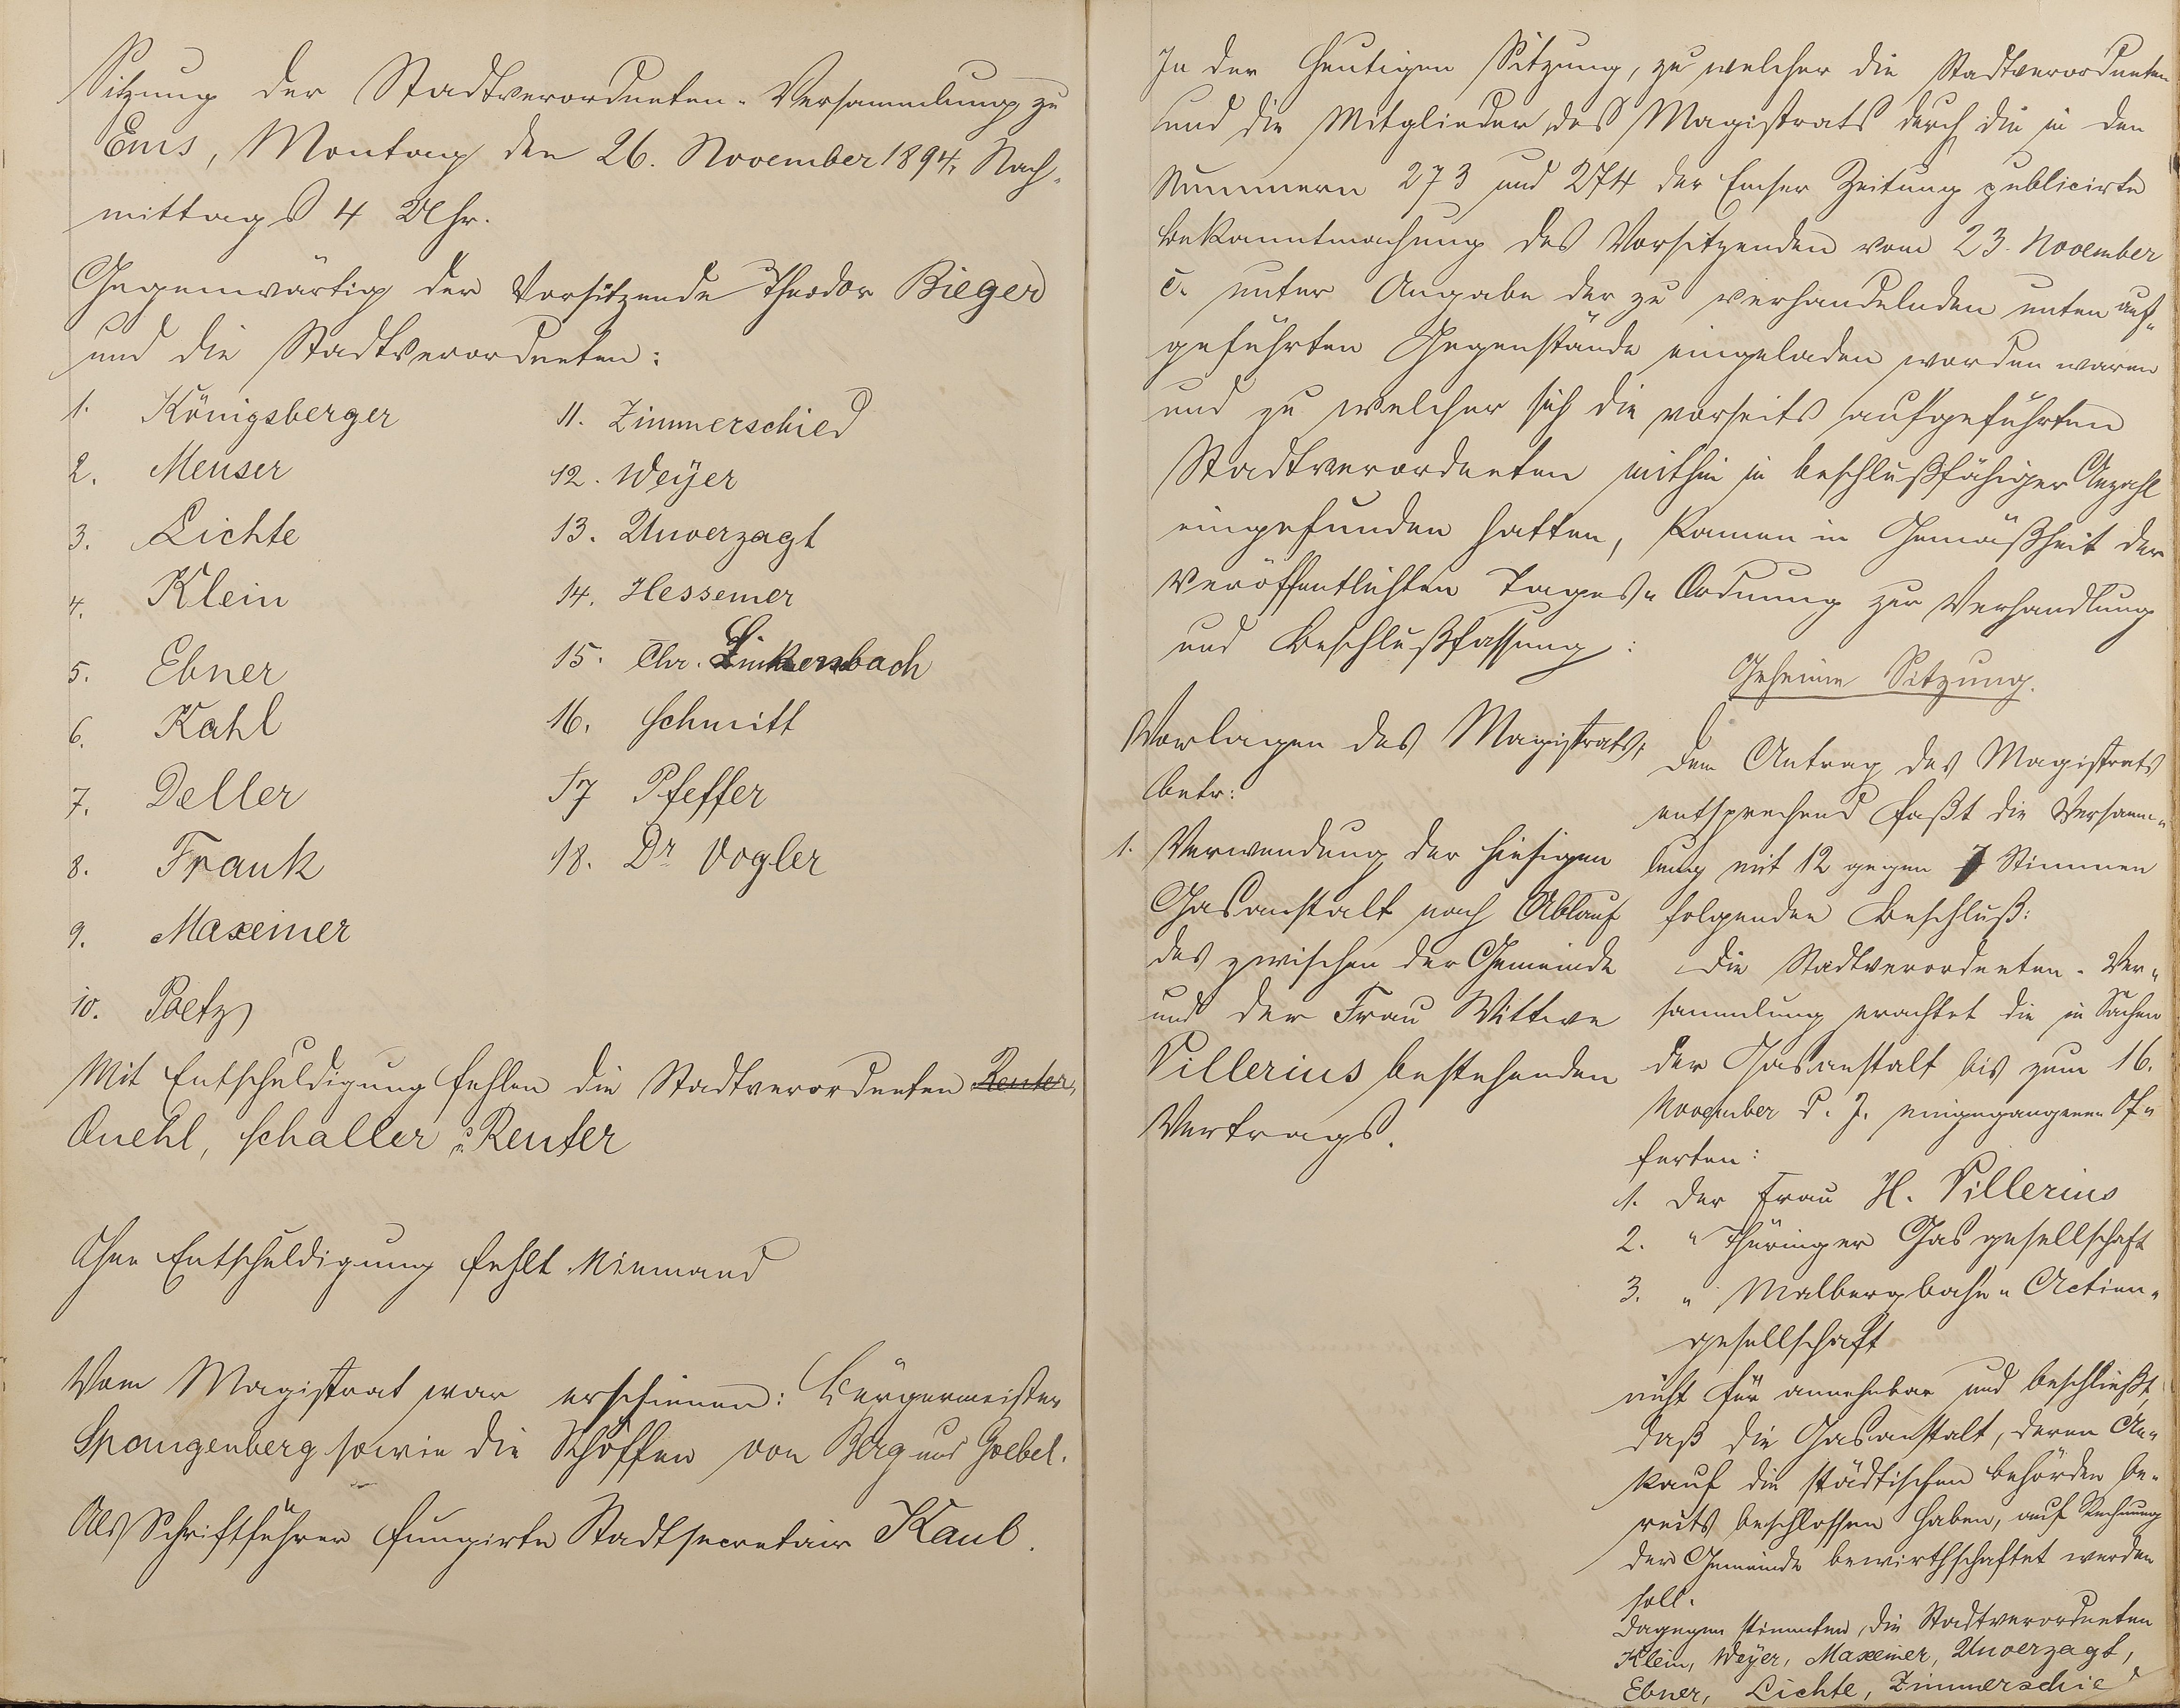 Sitzung der Stadtverordneten-Versammlung zu
Ems, Montag den 26. November 1894, Nach-
mittags 4 Uhr.
Gegenwärtig der Vorsitzende Theodor Bieger
und die Stadtverordneten:
1. Königsberger
2. Meuser
3. Lichte
4. Klein
5. Ebner
6. Kahl
7. Deller
8. Frank
9. Maxeiner
10. Paetz
11. Zimmerschied
12. Weÿer
13. Unverzagt
14. Hessemer
15. Chr. Linkenbach
16. Schmitt
17 Pfeffer
18. Dr Vogler
Mit Entschuldigung fehlen die Stadtverordneten Reuter,
Quehl, Schaller u. Reuter
Ohne Entschuldigung fehlt Niemand
Vom Magistrat war erschienen: Bürgermeister
Spangenberg sowie die Schöffen von Berg und Goebel.
Als Schriftführer fungirte Stadtsecretair Kaul.
In der heutigen Sitzung, zu welcher die Stadtverordneten
und die Mitglieder des Magistrats durch die in den
Nummern 273 und 274 der Emser Zeitung publicirte
Bekanntmachung des Vorsitzenden vom 23. November
c. unter Angabe der zu verhandelnden unten auf-
geführten Gegenstände eingeladen worden waren
und zu welcher sich die vorseits aufgeführten
Stadtverordneten mithin in beschlußfähiger Anzahl
eingefunden hatten, kamen in Gemäßheit der
veröffentlichten Tages-Ordnung zur Verhandlung
und Beschlußfassung:
Geheime Sitzung.
Vorlagen des Magistrats,
betr:
1. Verwendung der hiesigen
Gasanstalt nach Ablauf
des zwischen der Gemeinde
und der Frau Wittwe
Villerius bestehenden
Vertrags.
Dem Antrag des Magistrats
entsprechend faßt die Versamm-
lung mit 12 gegen 7 Stimmen
folgenden Beschluß:
Die Stadtverordneten-Ver-
sammlung erachtet die in Sachen
der Gasanstalt bis zum 16.
November d. J. eingegangenen Of-
ferten:
1. der Frau H. Villerius
2. " Thüringer Gasgesellschaft
3. " Malbergbahn-Actien-
gesellschaft
nicht für annehmbar und beschließt,
daß die Gasanstalt, deren An-
kauf die städtischen Behörden be-
reits beschlossen haben, auf Rechnung
der Gemeinde bewirthschaftet werden
soll.
Dagegen stimmten die Stadtverordneten
Klein, Weÿer, Maxeiner, Unverzagt,
Ebner, Lichte, Zimmerschied